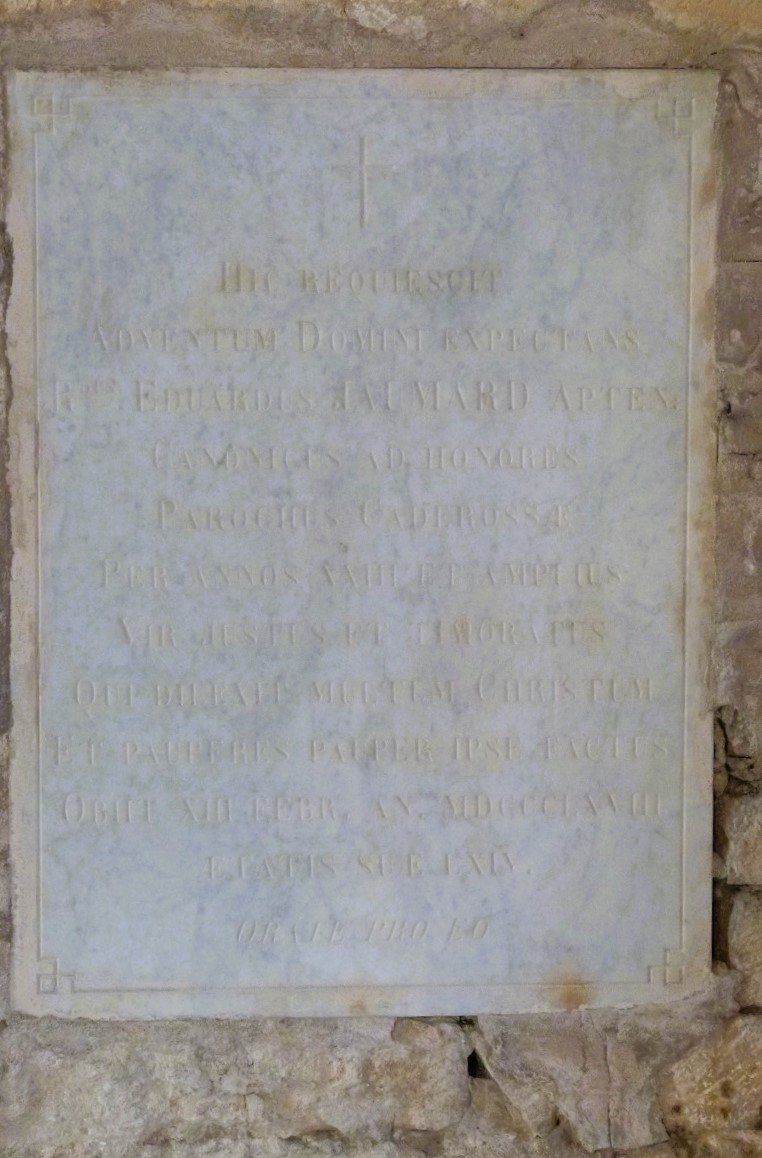 HIC REQUIESCIT
ADVENTUM DOMINI EXPECTANS
R^DUS EDUARDUS JAUMARD APTEN.
CANONICUS AD HONORES
PAROCHUS CADEROSSÆ
PER ANNOS XXIII ET AMPLIUS
VIR JUSTUS ET TIMORATUS
QUI DILEXIT MULTUM CHRISTUM
ET PAUPERES PAUPER IPSE FACTUS
OBIIT XIII FEBR. AN. MDCCCLXVIII
ETATIS SUE LXIV.
ORATE PRO EO